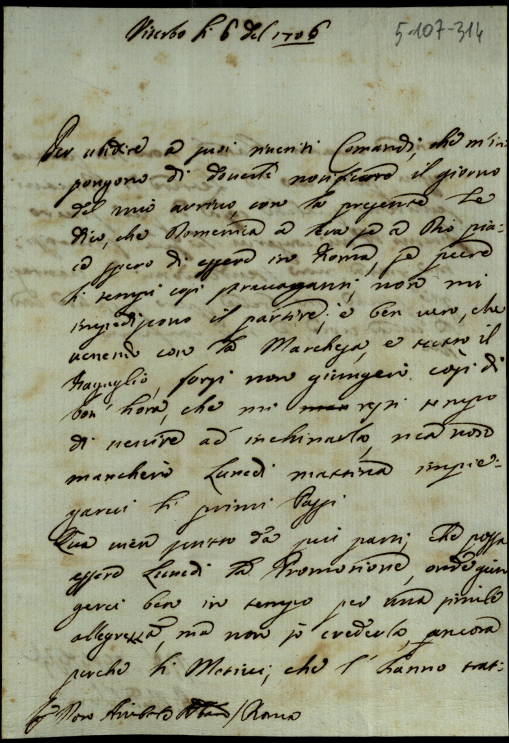 Viterbo li 6 del 1706
5-107-314
Per ubidire a suoi riveriti Comandi, che m'im
pongono di doverle notificare il giorno
del mio arrivo, con la presente Le
dico, che Domenica a sera se a Dio pia-
ce spero di essere in Roma, se pure
li tempi così stravaganti, non mi
impedissono il partire; è ben vero, che
venendo con la Marchesa, e tutto il
Bagaglio, forsi non giungerò così di
bon' hora, che mi resti tempo
di venire ad inchinarla, ma non
mancherò Lunedì mattina impie-
garci li primi Passi
Qua vien scritto da più parti, che possa
essere Lunedì la Promotione, onde giun
gerei ben in tempo per una simile
allegrezza, ma non so crederlo, ancora
perche li Motivi, che l'hanno trat-
Roma